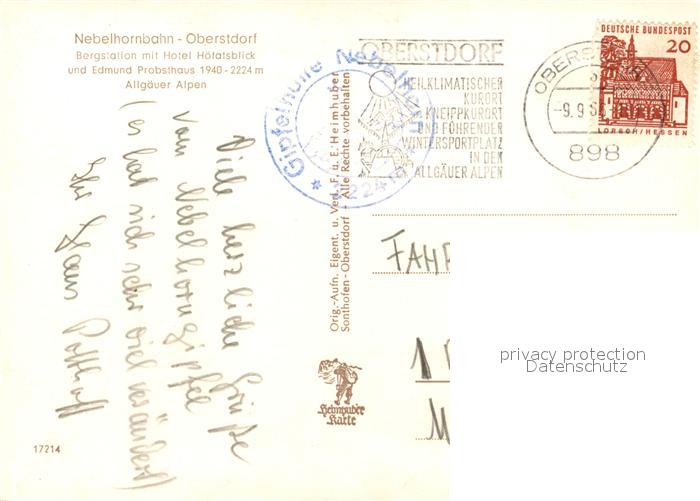 Nebelhornbahn - Oberstdorf
Bergstation mit Hotel Höfatsblick
und Edmund Probsthaus 1940 - 2224 m
Allgäuer Alpen
Viele herzliche Grüße
vom Nebelhorngipfel
(es hat sich sehr viel verändert)
Ihr Hans Potthoff
17214
Gipfelhütte Nebelhorn
2224
Orig.-Aufn. Eigent. u. Verl. F. u. E. Heimhuber
Sonthofen-Oberstdorf - Alle Rechte vorbehalten
Heimhuber
Karte
OBERSTDORF
HEILKLIMATISCHER
KURORT
KNEIPPKURORT
UND FÜHRENDER
WINTERSPORTPLATZ
IN DEN
ALLGÄUER ALPEN
OBERST
-9.9
898
DEUTSCHE BUNDESPOST
20
LORSCH/HESSEN
FAH
1
M
privacy protection
Datenschutz